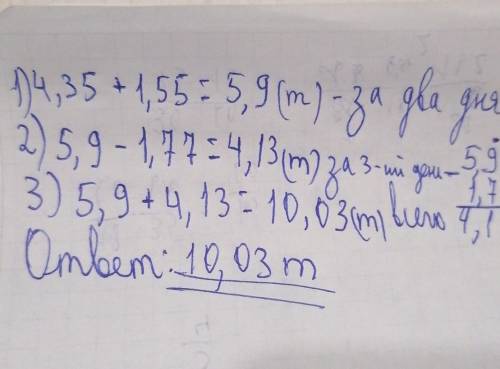 1) 4,35 + 1,55 = 5,9 (т) - за два дня
2) 5,9 - 1,77 = 4,13 (т) за 3-ий день
3) 5,9 + 4,13 = 10,03 (т) всего
Ответ: 10,03 т
- 5,9
1,7
4,1